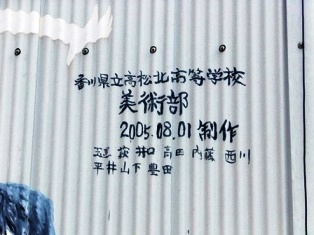 香川県立高松北高等学校
美術部
2005.08.01 制作
玉其 萩 井口 高田 内藤 西川
平井 山下 豊田